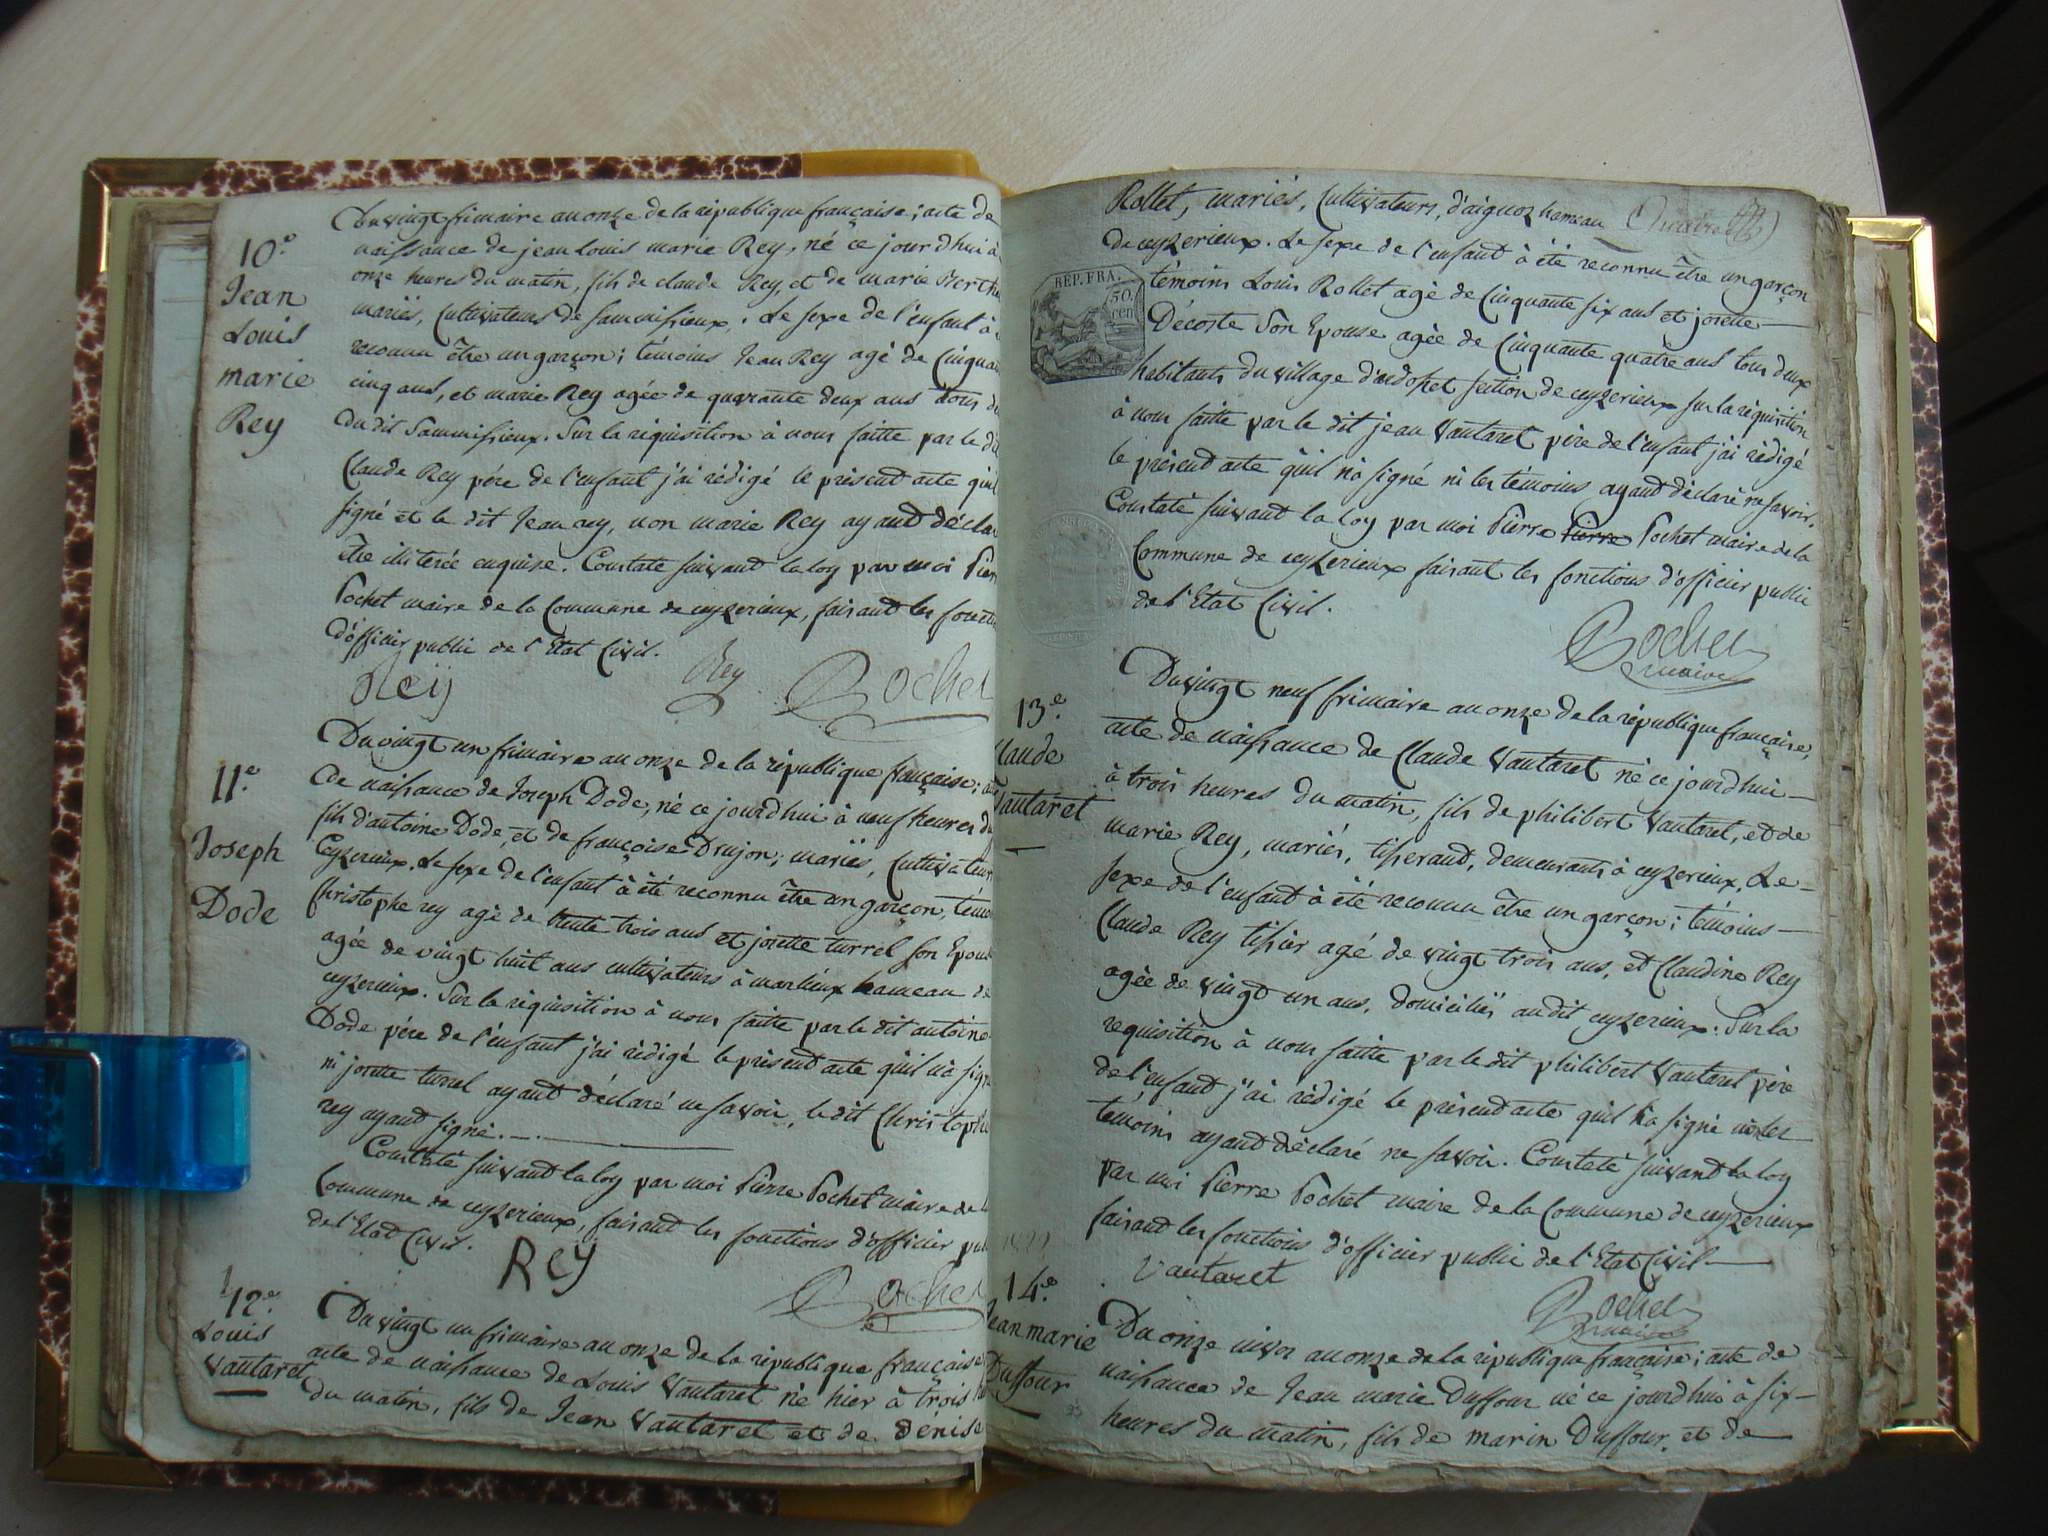 10.e
Jean
Louis
marie
Rey
Du vingt frimaire an onze de la république française; acte de
naissance de jean louis marie Rey, né ce jourdhui à
onze heures du matin, fils de claude Rey, et de marie Berthe
mariés, Cultivateurs de Sammissieux. Le sexe de l'enfant à
reconnu être un garçon; témoins Jean Rey agé de Cinquan
cinq ans, et marie Rey agée de quarante deux ans tous d
du dit Sammissieux. Sur la réquisition à nous faitte par le di
Claude Rey père de l'enfant j'ai rédigé le présent acte qu'il
signé et le dit Jean rey, non marie Rey ayant décla
être illiterée enquise. Constaté suivant la loy par moi Pierr
Pochet maire de la Commune de ceyzerieux, faisant les foncti
d'officier public de l'Etat Civil.
Rey Rey Pochet
11.e
Joseph
Dode
Du vingt un frimaire an onze de la république française; a
de naissance de Joseph Dode, né ce jourdhui à neuf heures du
fils d'antoine Dode, et de françoise Drujon; mariés, Cultivateur
Ceyzerieux. Le sexe de l'enfant à été reconnu être un garçon, témo
Christophe rey agé de trente trois ans et josette turrel son Epous
agée de vingt huit ans cultivateurs à marlieux hameau de
ceyzerieux. Sur la réquisition à nous faitte par le dit antoine
Dode père de l'enfant j'ai rédigé le présent acte qu'il n'a sign
ni josette turrel ayant déclaré ne savoir, le dit Christophe
rey ayant signé.
Constaté suivant la loy par moi Pierre Pochet maire de l
Commune de ceyzerieux, faisant les fonctions d'officier pub
de l'Etat Civil.
Rey Pochet
12.e
Louis
Vautaret
Du vingt un frimaire an onze de la république française
acte de naissance de Louis Vautaret né hier à trois h
du matin, fils de Jean Vautaret et de dénise
Rollet, mariés, Cultivateurs, d'aignoz hameau
de ceyzerieux. Le sexe de l'enfant à été reconnu être un garçon
REP. FRA.
50.
cen
témoins Louis Rollet agé de Cinquante six ans et josette
Décoste Son Epouse agée de Cinquante quatre ans tous deux
habitants du village d'ardosset section de ceyzerieux sur la réquisition
à nous faitte par le dit jean Vautaret père de l'enfant j'ai rédigé
le présent acte qu'il n'a signé ni les témoins ayant déclaré ne savoir.
Constaté suivant la loy par moi Pierre Pierre Pochet maire de la
Commune de ceyzerieux faisant les fonctions d'officier public
de l'Etat Civil.
Pochet
maire
13.e
Claude
Vautaret
Du vingt neuf frimaire an onze de la république française,
acte de naissance de Claude Vautaret né ce jourdhui
à trois heures du matin, fils de philibert Vautaret, et de
marie Rey, mariés, tisserand, demeurants à ceyzerieux, Le
sexe de l'enfant à été reconnu être un garçon; témoins
Claude Rey tissier agé de vingt trois ans, et Claudine Rey
agée de vingt un ans, domiciliés audit ceyzerieux. Sur la
requisition à nous faitte par le dit philibert Vautaret père
de l'enfant j'ai rédigé le présent acte qu'il a signé non les
témoins ayant déclaré ne savoir. Constaté suivant la loy
par moi Pierre Pochet maire de la Commune de ceyzerieux
faisant les fonctions d'officier public de l'Etat Civil
Vautaret
Pochet
maire
14.e
Jean marie
Duffour
Du onze nivoz an onze de la république française; acte de
naissance de Jean marie Duffour né ce jourdhui à six
heures du matin, fils de marin Duffour, et de